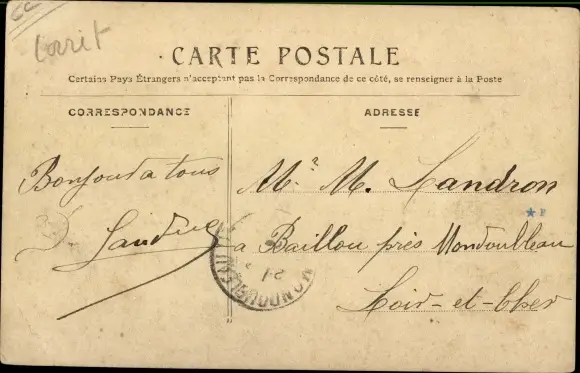 CARTE POSTALE
Certains Pays Étrangers n'acceptent pas la Correspondance de ce côté, se renseigner à la Poste
CORRESPONDANCE
Bonjour a tous
D.
ADRESSE
Mr M. Landron
a Baillou près Mondoubleau
Loir-et-Cher
MONDOUBLEAU
21